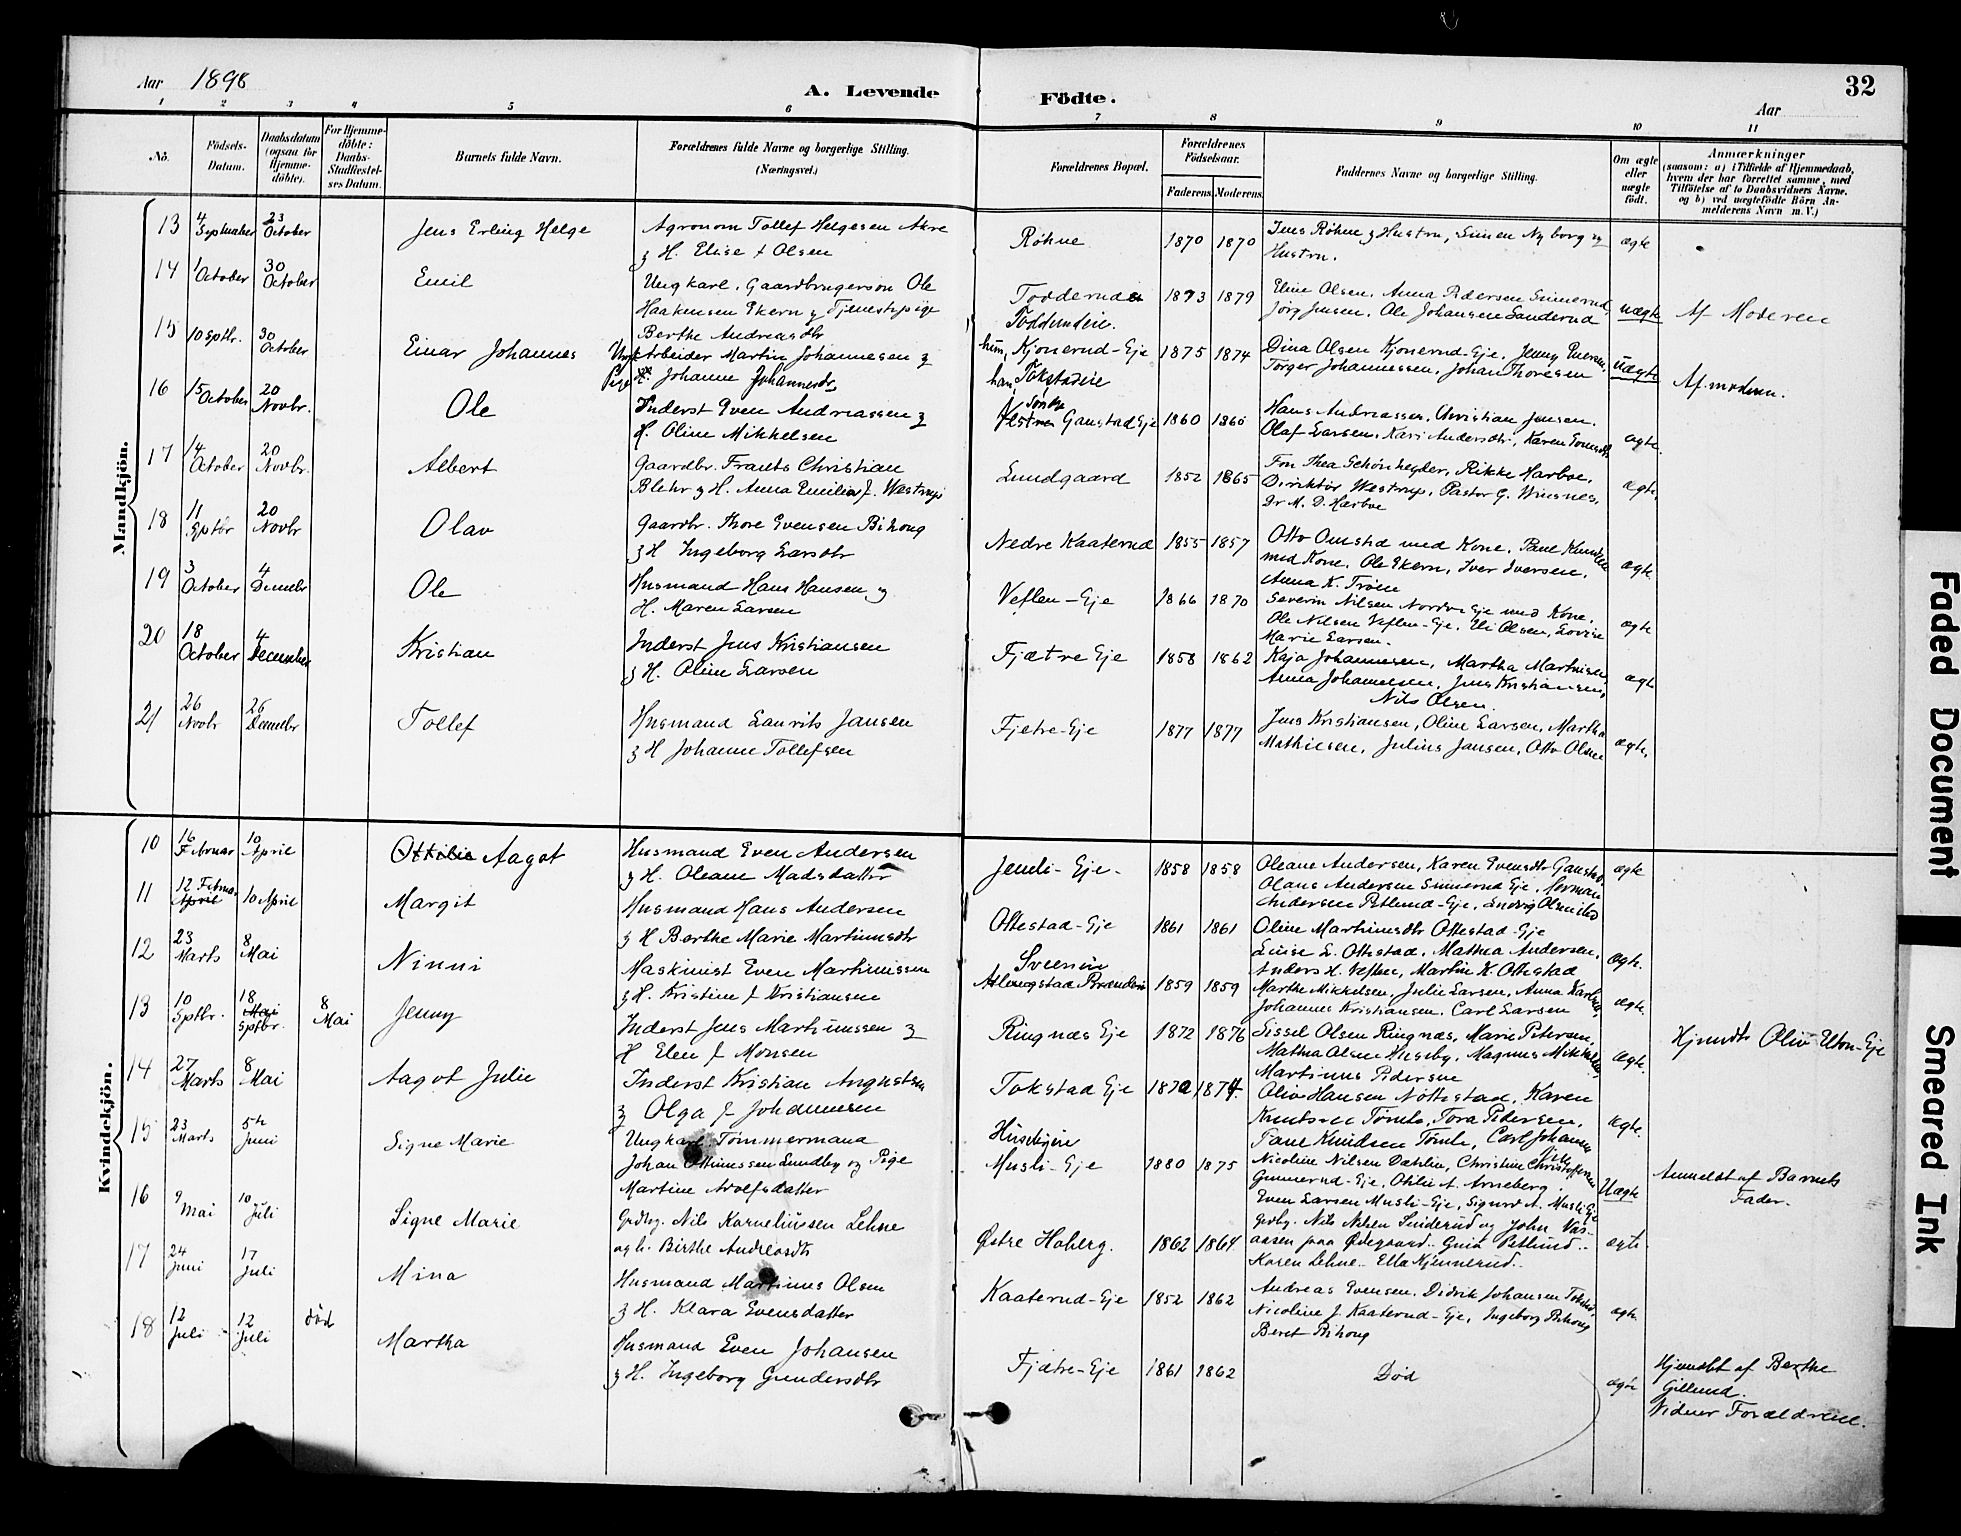 Aar 1898
A. Levende Födte.
32
Aar
1 2 3 4 5 6 7 8 9 10 11
No.
Födsels-Datum.
Daabsdatum (ogsaa for Hjemme-döbte).
For Hjemme-döbte: Daabs-Stadfæstel-ses Datum.
Barnets fulde Navn.
Forældrenes fulde Navne og borgerlige Stilling. (Næringsvei.)
Forældrenes Bopæl.
Forældrenes Födselsaar.
Faderens. Moderens.
Faddernes Navne og borgerlige Stilling.
Om ægte eller uægte födt.
Anmærkninger
(saasom: a) i Tilfælde af Hjemmedaab, hvem der har forrettet samme, med Tilföielse af to Daabsvidners Navne, og b) ved uægtefödte Börn An-melderens Navn m. V.)
Mandkjön.
13 4 September 23 October Jens Erling Helge Agronom Tollef Helgesen Akre
& H. Elise f Olsen Røhne 1870 1870 Jens Røhne & Hustru, Simen Nyborg og
Hustru. ægte
14 1 October 30 October Emil Ungkarl. Gaardbrugersøn Ole
Haakensen Ekern & Tjenestepige
Berthe Andreasdtr Todderud 1873 1879 Eline Olsen, Anna Pedersen Simerud,
Todderudeie. Jørg Jensen, Ole Johansen Sanderud uægte Af Moderen
15 10 Septbr. 30 October Einar Johannes Ungk Arbeider Martin Johannesen &
Pige H. Johanne Johannesdtr hun, Kjonerud-Eje 1875 1874 Dina Olsen Kjonerud-Eje, Jenny Iversen,
han Tokstadeie Torger Johannessen, Johan Thoresen uægte Af moderen.
16 15 October 20 Novbr. Ole Inderst Even Andreassen &
H. Oline Mikkelsen Gaustad Eje 1860 1860 Hans Andreassen, Christian Jensen,
Olaf Larsen, Kari Andersdtr, Karen ægte.
17 14 October 20 Novbr. Albert Gaardbr. Frants Christian
Blehr & H. Anna Emilia f. Westrup Lundgaard 1852 1865 Frn Thea Schönheyder, Rikke Harboe,
Direktör Westrup, Pastor G. Wiesnes,
Dr M. D. Harboe ægte
18 11 Sptbr 20 Novbr Olav Gaardbr. Thore Evensen Bihong
& H Ingeborg Larsdtr Nedre Kaaterud 1855 1857 Otto Omstad med Kone, Paul Knudsen
med Kone, Ole Ekern, Iver Iversen,
Anna K. Trøen ægte
19 3 October 4 Decmbr Ole Husmand Hans Hansen og
H. Maren Larsen Veflen-Eje 1866 1870 Severin Nilsen Nordre Eje med Kone,
Ole Nilsen Veflen-Eje, Eli Olsen, Lovise
Marie Larsen. ægte
20 18 October 4 December Kristian Inderst Jens Kristiansen
& H. Oline Larsen Fjætre Eje 1858 1862 Kaja Johannesen, Martha Martinsen,
Anna Johannesen, Jens Kristiansen,
Nils Olsen. ægte
21 26 Novbr 26 Decmbr Tollef Husmand Laurits Jansen
& H Johanne Tollefsen Fjetre-Eje 1877 1877 Jens Kristiansen, Oline Larsen, Martha
Mathiesen, Julius Jansen, Otto Olsen ægte.
Kvindekjön.
10 16 Februar 10 April Ottilie Aagot Husmand Even Andersen
& H. Oleane Madsdatter Jemli-Eje- 1858 1858 Oleane Andersen, Karen Evensdtr Gaustad,
Olaus Andersen Simerud Eje,
Andersen Petlund-Eje, ægte
11 12 Februar April 10 April Margit Husmand Hans Andersen
& H Berthe Marie Martinusdtr Ottestad-Eje 1861 1861 Oline Martinusdtr Ottestad-Eje
Luise L. Ottestad, Mathea Andersen,
Anders H. Veflen, Martin K. Ottestad ægte.
12 23 Marts 8 Mai Ninni Maskinist Even Martinissen
& H. Kristine f Kristiansen Sveenin
Atlungstad Brænderi 1859 1859 Marthe Mikkelsen, Julie Larsen, Anna Karlsen,
Johannes Kristiansen, Carl Larsen ægte.
13 10 Sptbr. 18 Mai Sptbr. 8 Mai Jenny Inderst Jens Martinussen &
H Elen f Monsen Ringnæs Eje 1872 1876 Sissel Olsen Ringnæs, Marie Petersen,
Mathea Olsen Huseby, Magnus Mikkelsen,
Martinus Pedersen ægte. Hjemdt Oliv Elton-Eje
14 27 Marts 8 Mai Aagot Julie Inderst Kristian Augustsen
& Olga f Johannesen Tokstad Eje 1872 1874. Oliv Hansen Nøttestad, Karen
Knutsen Tømte, Tora Pedersen,
Paul Knudsen Tømte, Carl Johansen ægte.
15 23 Marts 5te Juni Signe Marie Ungkarl Tømmermand
Johan Ottinussen Lundby og Pige
Martine Adolfsdatter Husebyeie
Musli-Eje 1880 1875 Nicoline Nilsen Dæhlin, Christine Christoffersen
Gunnerud-Eje, Otilie A. Arneberg,
Even Larsen Musli-Eje, Sigurd A. Musli Eje Uægte Anmeldt af Barnets
Fader.
16 9 Mai 10 Juli Signe Marie Grdbr. Nils Korneliussen Lehne
og h. Birthe Andreasdtr Østre Hoberg. 1862 1864. Grdbr. Nils Nilsen Sinderud og John Vas-
aasen paa Ødegaard. Guia Petlund..
Karen Lehne.. Ella Kjønnerud.. ægte
17 24 Juni 17 Juli Mina Husmand Martinus Olsen
& H. Klara Evensdatter Kaaterud-Eje 1852 1862 Andreas Evensen, Didrik Johansen Tokstad,
Nicoline J. Kaaterud-Eje, Ingeborg Bihong
Beret Bihong ægte
18 12 Juli 12 Juli død Martha Husmand Even Johansen
& H. Ingeborg Gundersdtr Fjætre-Eje 1861 1862 Død ægte Hjemdbt af Berthe
Gillund.
Vidner Forældrene.
Faded Document
Smeared Ink